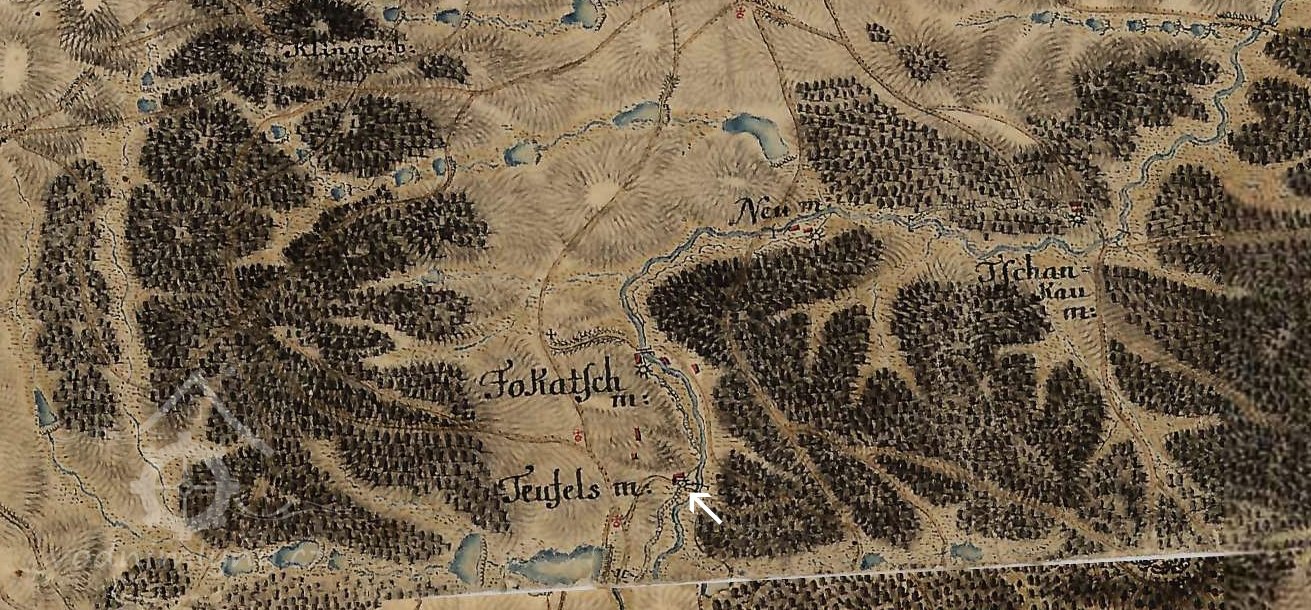 Klinger:b:
Neu m:
Tſchan=
kau
m:
Fokatſch
m:
Teufels m: